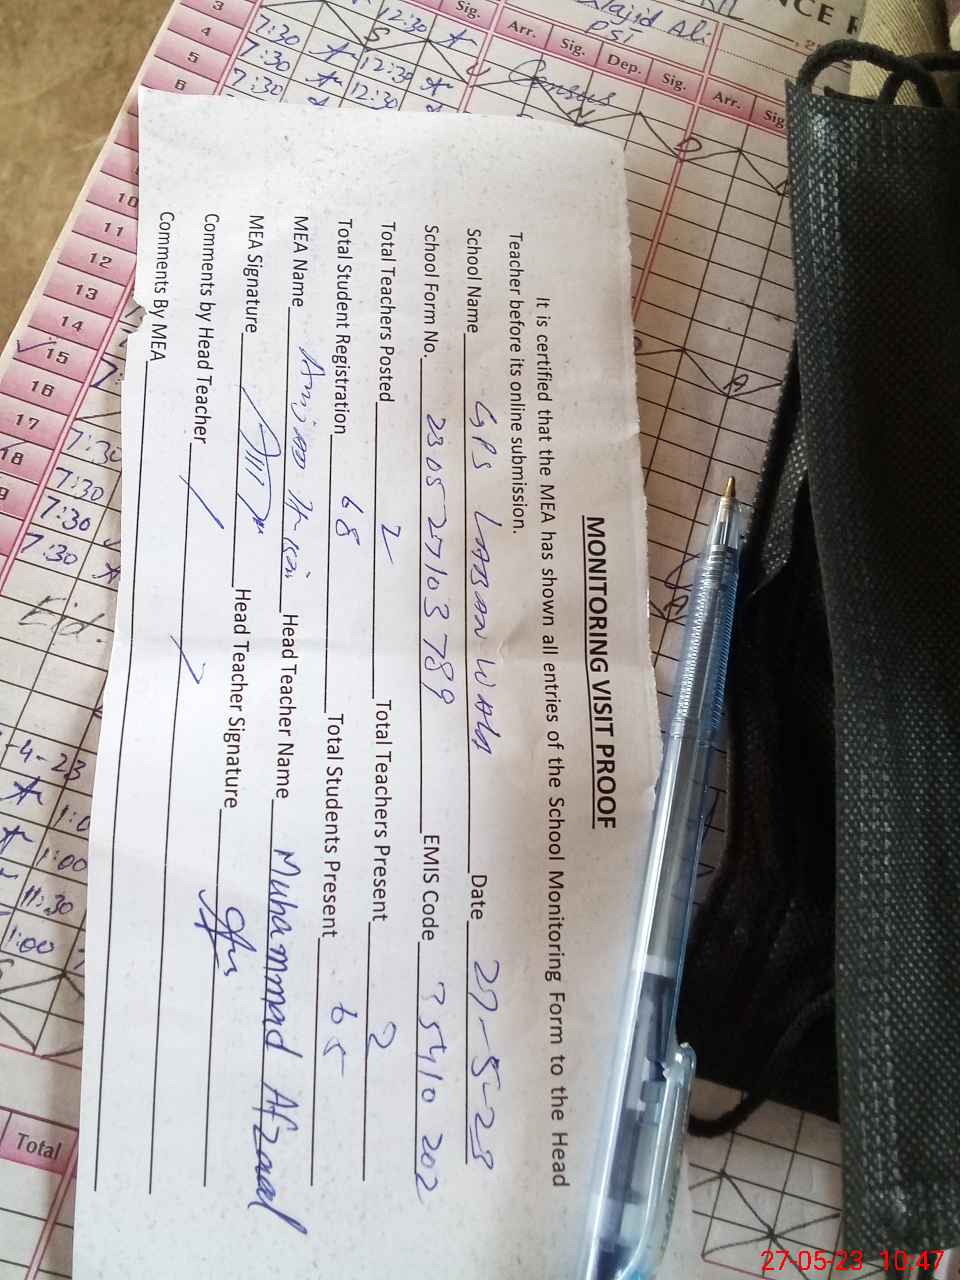 MONITORING VISIT PROOF
It is certified that the MEA has shown all entries of the School Monitoring Form to the Head
Teacher before its online submission.
School Name GPS Date 27-5-23
School Form No. 2305 27103789 EMIS Code 35410 202
Total Teachers Posted 2 Total Teachers Present 2
Total Student Registration 68 Total Students Present 65
MEA Name Head Teacher Name Muhammad Afzaal
MEA Signature Head Teacher Signature
Comments by Head Teacher
Comments By MEA
Majid Ali
PST
Sig. Arr. Sig. Dep. Sig. Arr. Sig.
Census
3 7:30 12:30
4 7:30 12:30
5 7:30
6
10
11
12
13
14
15
16
17 7:30
18 7:30
7:30
7:30
Eid
4-23
1:00
11:30
1:00
Total
27-05-23 10:47